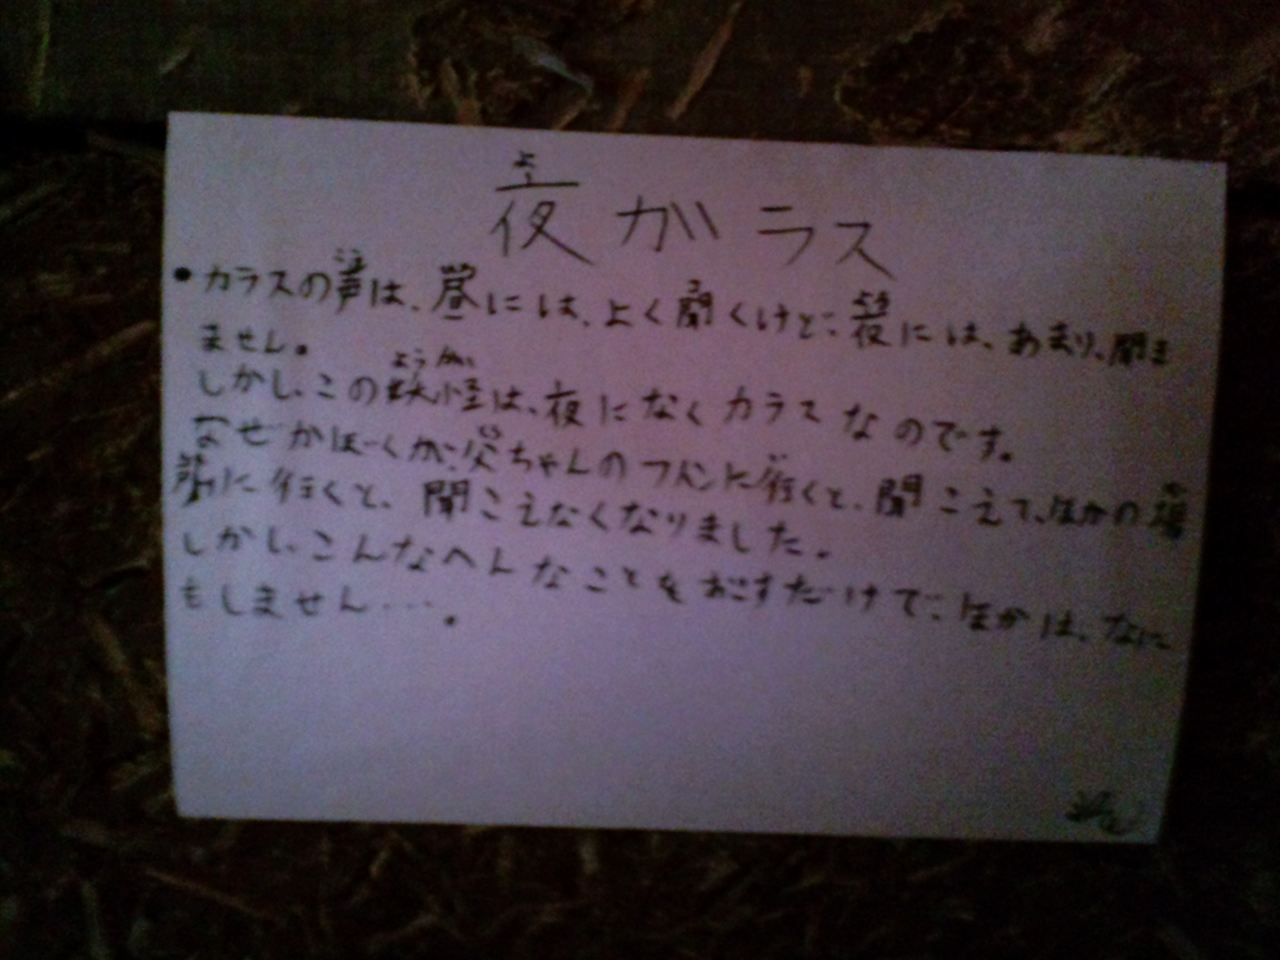 夜ガラス
・カラスの声は、昼には、よく聞くけど、夜には、あまり、聞き
ません。
しかし、この妖怪は、夜になくカラスなのです。
なぜかぼーくが、父ちゃんのフトンに行くと、聞こえて、ほかの場
所に行くと、聞こえなくなりました。
しかし、こんなヘンなことをおこすだけで、ほかは、なに
もしません…。